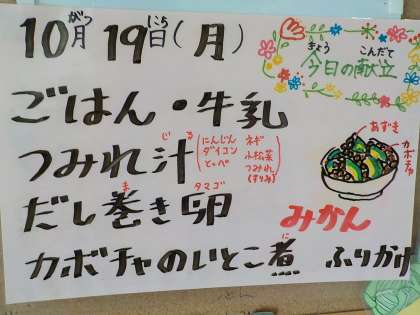 10月 19日(月)
がつ にち
きょう こんだて
今日の献立
ごはん・牛乳
つみれ汁
じる
にんじん
ダイコン
とっぺ
ネギ
小松菜
つみれ
(すりみ)
だし巻き卵
ま タマゴ
みかん
あずき
カボチャ
カボチャのいとこ煮 ふりかけ
に